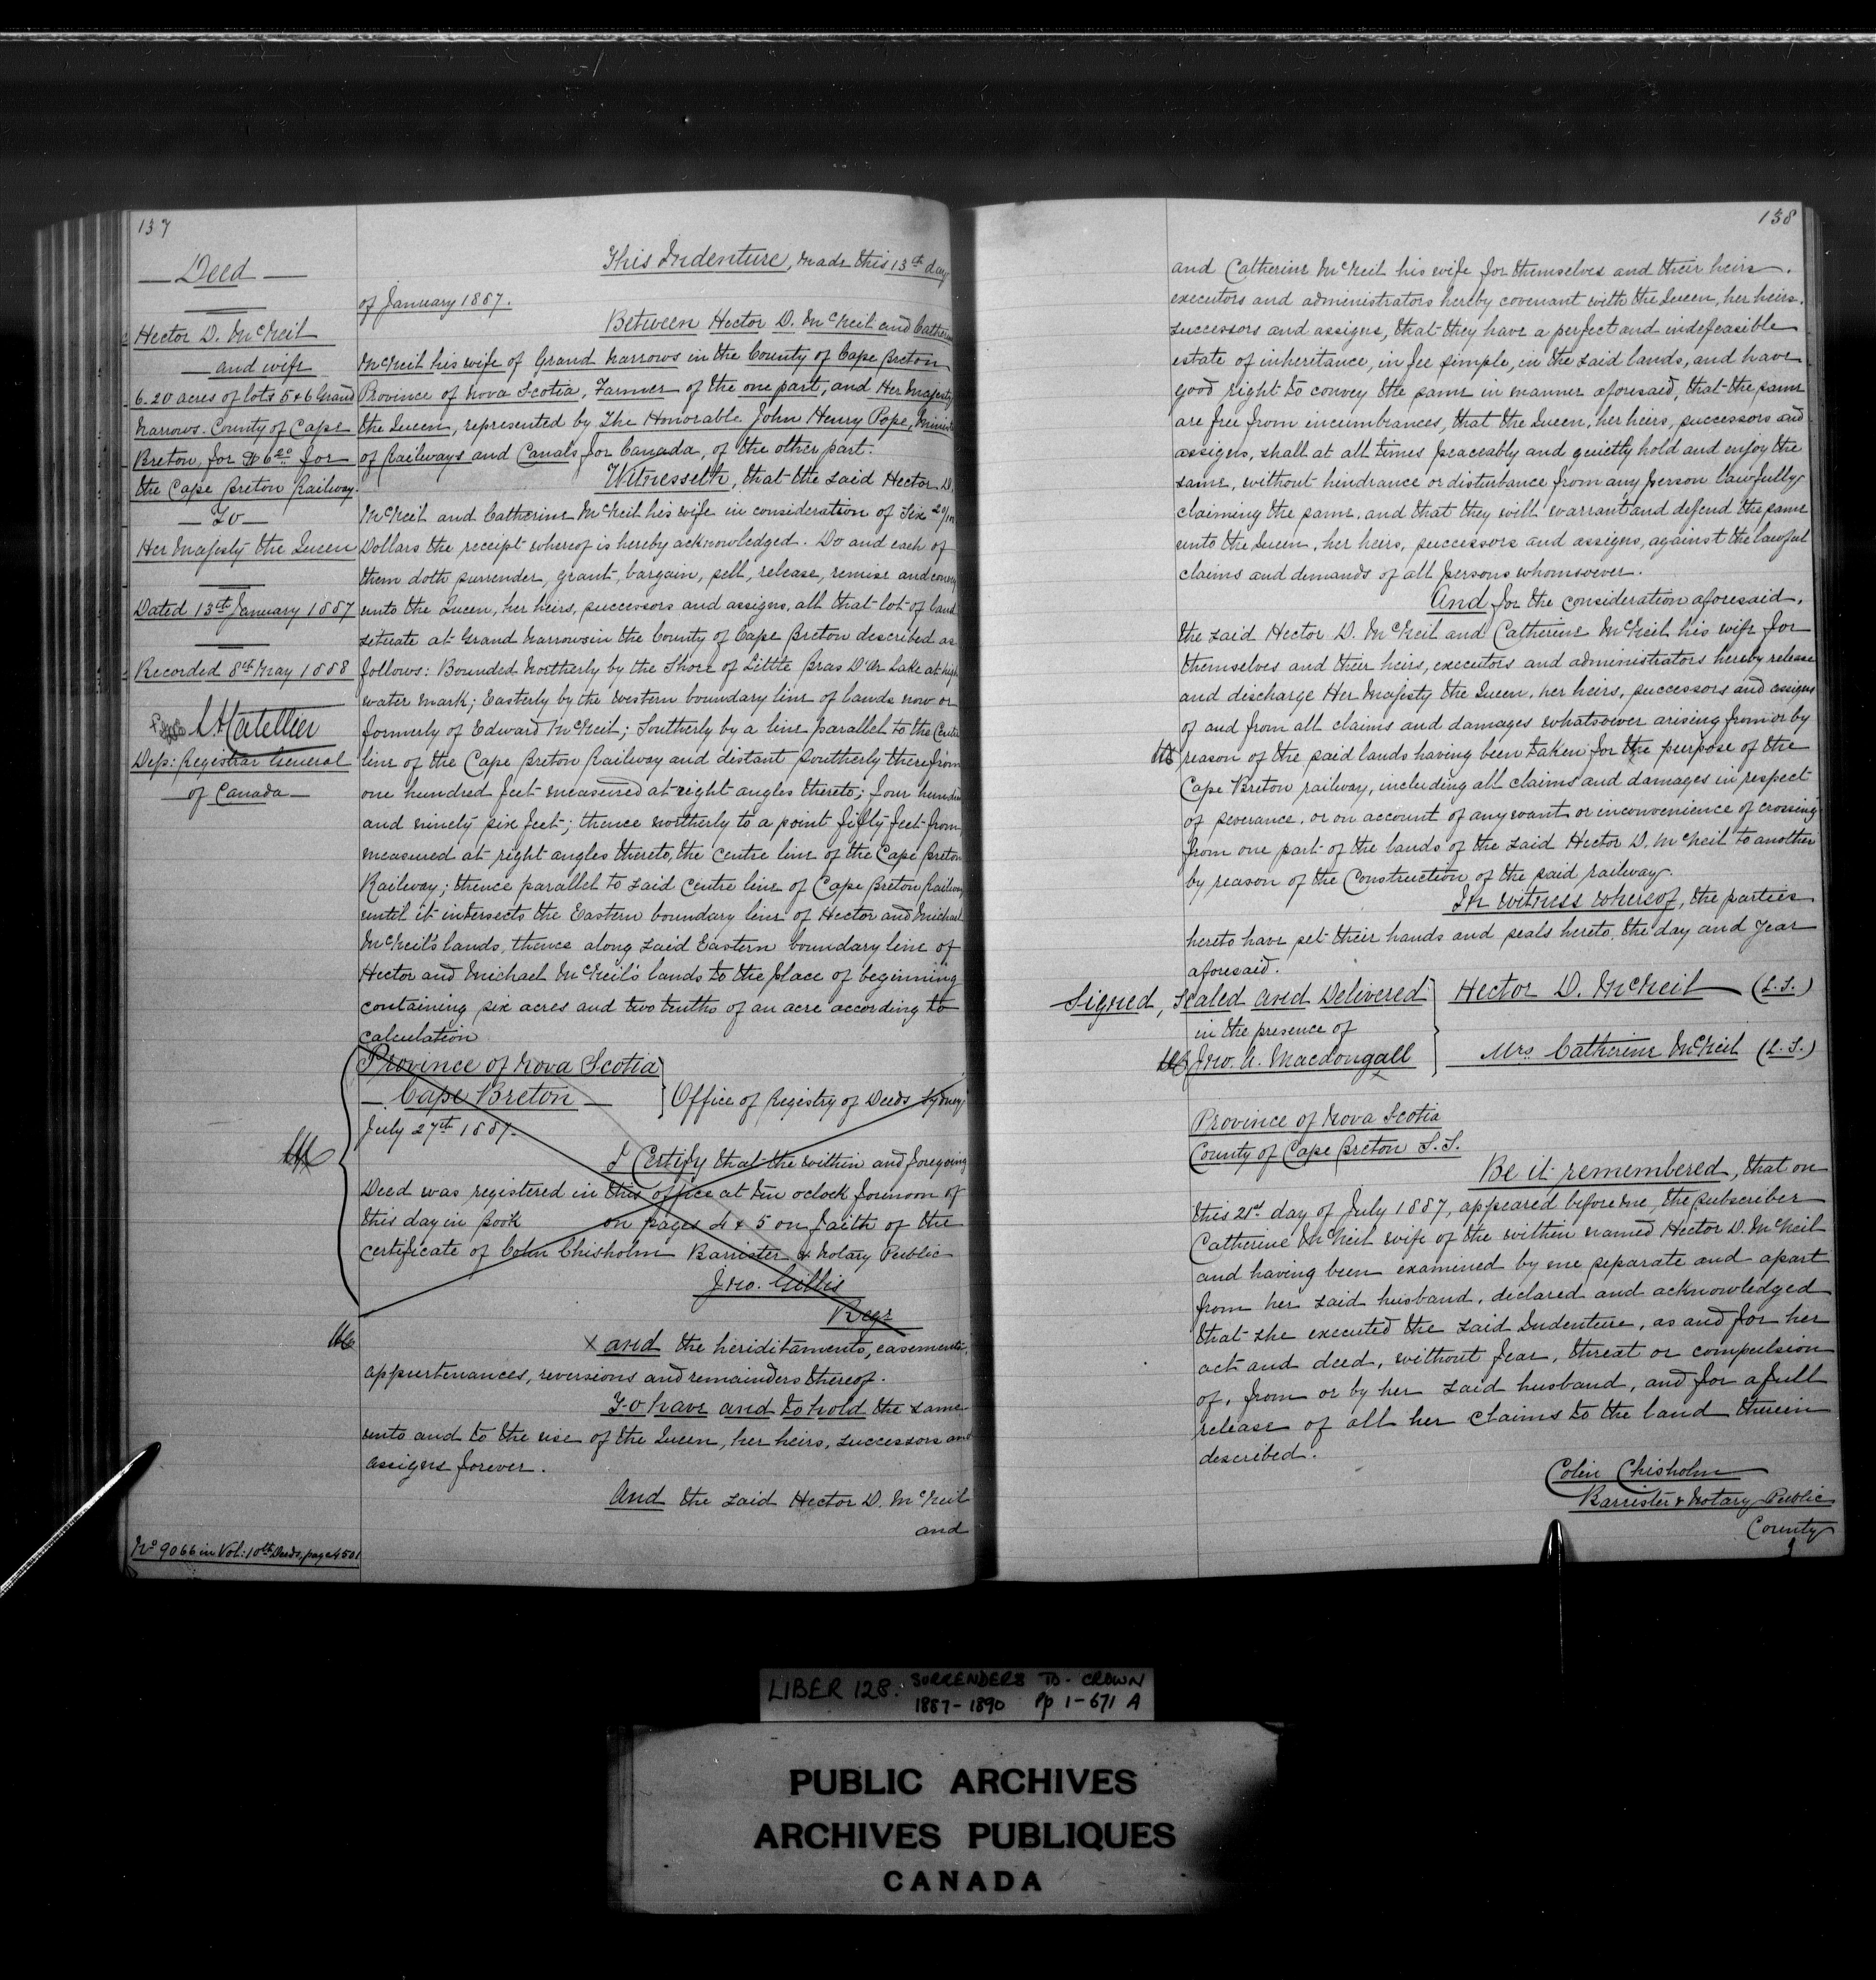 137
Deed
Hector D. McNeil
and wife
6.20 acres of lots 5 & 6 Grand
Narrows. County of Cape
Breton, for $6.20 for
the Cape Breton Railway.
To
Her Majesty the Queen
Dated 13th January 1887
Recorded 8th May 1888
Dep: Registrar General
of Canada
No 9066 in Vol: 10th Deeds, page 4501
This Indenture, made this 13th day
of January 1887.
Between Hector D. McNeil and Catherine
McNeil his wife of Grand Narrows in the County of Cape Breton
Province of Nova Scotia, Farmer of the one part, and Her Majesty
the Queen, represented by The Honorable John Henry Pope, Minister
of Railways and Canals for Canada, of the other part.
Witnesseth, that the said Hector D.
McNeil and Catherine McNeil his wife in consideration of Six 20/100
Dollars the receipt whereof is hereby acknowledged. Do and each of
them doth surrender, grant, bargain, sell, release, remise and convey
unto the Queen, her heirs, successors and assigns, all that lot of land
situate at Grand Narrows in the County of Cape Breton described as
follows: Bounded Northerly by the Shore of Little Bras D'Or Lake at high
water mark; Easterly by the western boundary line of lands now or
formerly of Edward McNeil; Southerly by a line parallel to the Centre
line of the Cape Breton Railway and distant Southerly therefrom
one hundred feet measured at right angles thereto; four hundred
and ninety six feet; thence northerly to a point fifty feet from,
measured at right angles thereto, the centre line of the Cape Breton
Railway; thence parallel to said centre line of Cape Breton Railway
until it intersects the Eastern boundary line of Hector and Michael
McNeil's lands, thence along said Eastern boundary line of
Hector and Michael McNeil's lands to the place of beginning
containing six acres and two tenths of an acre according to
calculation
Province of Nova Scotia
Cape Breton } Office of Registry of Deeds Sydney
July 27th 1887.
I Certify that the within and foregoing
Deed was registered in this office at ten oclock forenoon of
this day in Book on pages 4 & 5 on faith of the
certificate of Colin Chisholm Barrister & Notary Public
Jno. Gillis
Regr
x and the heriditaments, easements,
appurtenances, reversions and remainders thereof.
To have and to hold the same
unto and to the use of the Queen, her heirs, successors and
assigns forever.
And the said Hector D. McNeil
and
138
and Catherine McNeil his wife for themselves and their heirs,
executors and administrators hereby covenant with the Queen, her heirs,
successors and assigns, that they have a perfect and indefeasible
estate of inheritance, in fee simple, in the said lands, and have
good right to convey the same in manner aforesaid, that the same
are free from incumbrances, that the Queen, her heirs, successors and
assigns, shall at all times peaceably and quietly hold and enjoy the
same, without hindrance or disturbance from any person lawfully
claiming the same, and that they will warrant and defend the same
unto the Queen, her heirs, successors and assigns, against the lawful
claims and demands of all persons whomsoever.
And for the consideration aforesaid,
the said Hector D. McNeil and Catherine McNeil his wife for
themselves and their heirs, executors and administrators hereby release
and discharge Her Majesty the Queen, her heirs, successors and assigns
of and from all claims and damages whatsoever arising from or by
reason of the said lands having been taken for the purpose of the
Cape Breton railway, including all claims and damages in respect
of severance, or on account of any want or inconvenience of crossing
from one part of the lands of the said Hector D. McNeil to another
by reason of the Construction of the said railway.
In witness whereof, the parties
hereto have set their hands and seals hereto, the day and year
aforesaid.
Signed, Sealed and Delivered } Hector D. McNeil (L.S.)
in the presence of
Jno. A. Macdougall } Mrs Catherine McNeil (L.S.)
x
Province of Nova Scotia
County of Cape Breton S.S.
Be it remembered, that on
this 21st day of July 1887, appeared before me, the subscriber
Catherine McNeil wife of the within named Hector D. McNeil
and having been examined by me separate and apart
from her said husband, declared and acknowledged
that she executed the said Indenture, as and for her
act and deed, without fear, threat or compulsion
of, from or by her said husband, and for a full
release of all her claims to the land therein
described.
Colin Chisholm
Barrister & Notary Public
County
LIBER 128. SURRENDERS TO CROWN
1887-1890 Pp 1-671 A
PUBLIC ARCHIVES
ARCHIVES PUBLIQUES
CANADA